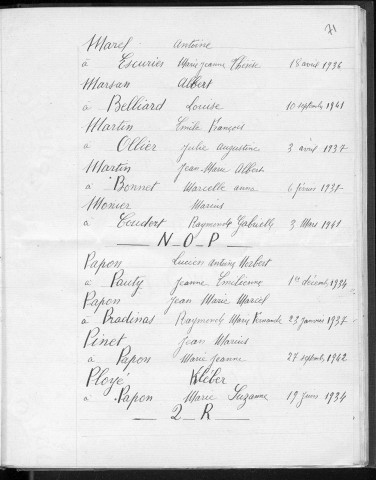 71
Marcel Antoine
à Escurier Marie Jeanne Thérèse 18 avril 1936
Marsan Albert
à Belliard Louise 10 septembre 1941
Martin Emile François
à Ollier Julie Augustine 3 avril 1937
Martin Jean Marie Albert
à Bonnet Marcelle Anna 6 février 1937
Monier Marius
à Coudert Raymonde Gabrielle 3 Mars 1941
N_O_P
Papon Lucien Antoine Norbert
à Pauty Jeanne Emilienne 1er décemb. 1934
Papon Jean Marie Marcel
à Pradinas Raymonde Marie Fernande 23 janvier 1937
Pinet Jean Marius
à Papon Marie Jeanne 27 septemb. 1942
Ployé Kléber
à Papon Marie Suzanne 19 1934
Q R